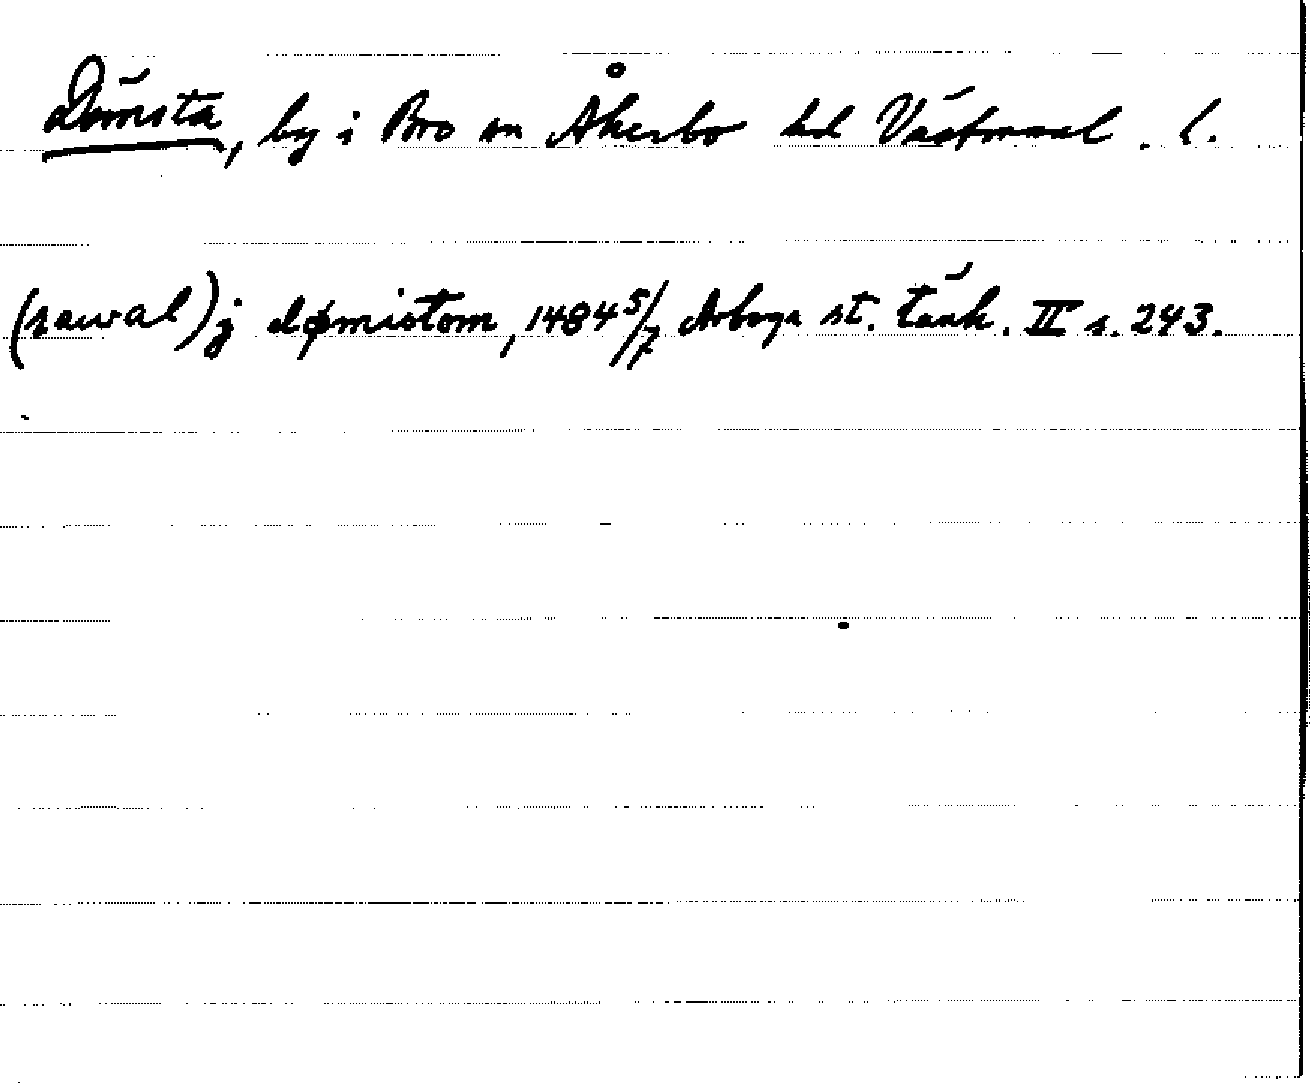 Dömsta, by i Bro sn Åkerbo hd Västmanl. l.
(rawal) j dømistom, 1484 5/7 Arboga st. tänk. II s. 243.